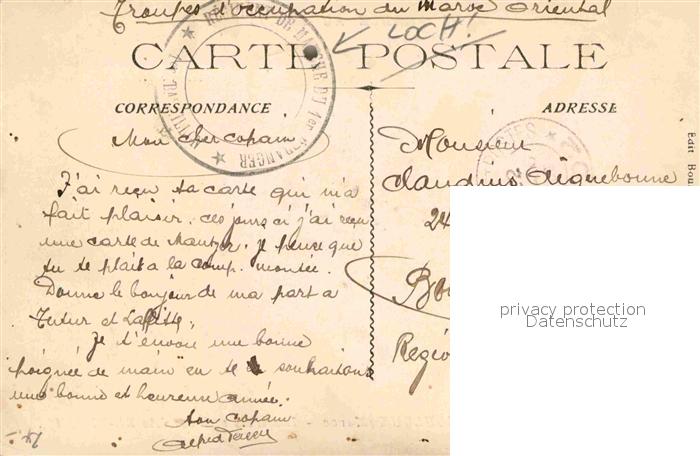 Troupes d'occupation du Maroc Oriental
LOCH!
CARTE POSTALE
CORRESPONDANCE
ADRESSE
Mon cher copain
J'ai reçu ta carte qui m'a
fait plaisir. ces jours ci j'ai reçu
une carte de je pense que
tu te plait a la comp. montée.
Donne le bonjour de ma part a
Tutur et
Je t'envoie une bonne
poignée de main en te souhaitant
une bonne et heureuse année.
ton copain
Alfred
Monsieur
Claudius Aiguebonne
24
Régio
Edit Bou
privacy protection
Datenschutz